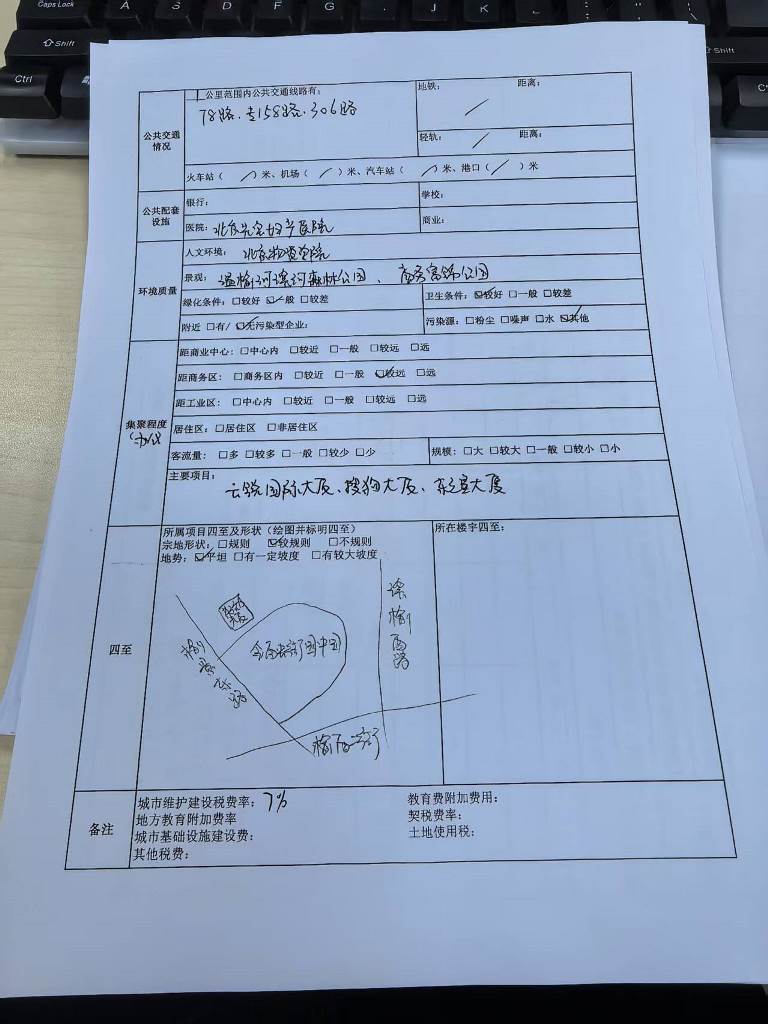 Caps Lock
A
S
D
F
G
J
K
L
Shift
Shift
Ctrl
公共交通情况
1公里范围内公共交通线路有:
78路、专158路、306路
地铁: / 距离:
轻轨: / 距离:
火车站( / )米、机场( / )米、汽车站( / )米、港口( / )米
公共配套设施
银行:
学校:
医院:
妇产医院
商业:
环境质量
人文环境: 北京物资学院
景观: 温榆河 森林公园、 公园
绿化条件:□较好 ☑一般 □较差
卫生条件:☑较好 □一般 □较差
附近 □有/ ☑无污染型企业:
污染源:□粉尘 □噪声 □水 ☑其他
集聚程度
(办公)
距商业中心:□中心内 □较近 □一般 □较远 □远
距商务区:□商务区内 □较近 □一般 ☑较远 □远
距工业区:□中心内 □较近 □一般 □较远 □远
居住区:□居住区 □非居住区
客流量:□多 □较多 □一般 □较少 □少
规模:□大 □较大 □一般 □较小 □小
主要项目:
云锐国际大厦、搜狗大厦、东之星大厦
四至
所属项目四至及形状(绘图并标明四至)
宗地形状:□规则 ☑较规则 □不规则
地势:☑平坦 □有一定坡度 □有较大坡度
所在楼宇四至:
榆景东路
榆西路
备注
城市维护建设税费率: 7%
教育费附加费用:
地方教育附加费率
契税费率:
城市基础设施建设费:
土地使用税:
其他税费: